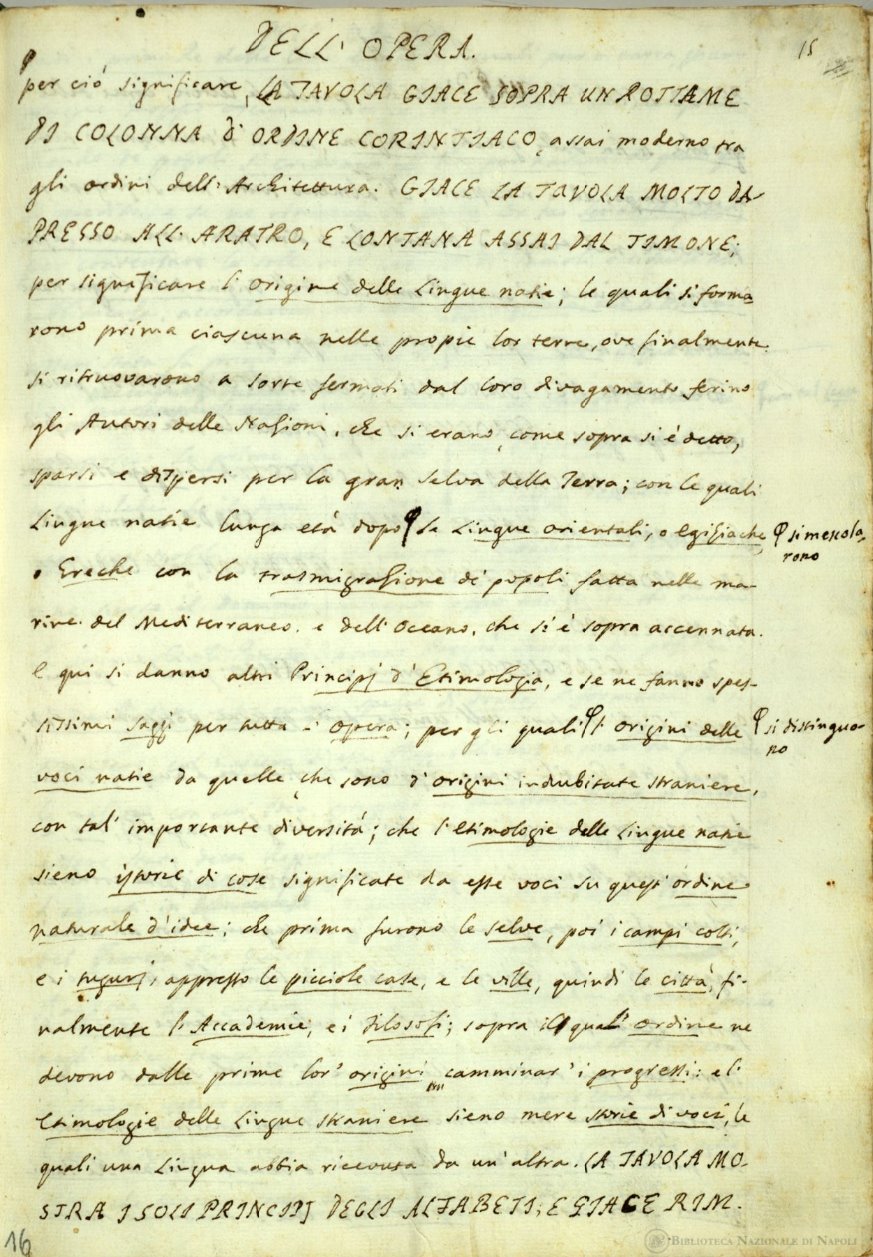 DELL' OPERA.
15
per ciò significare, LA TAVOLA GIACE SOPRA UN ROTTAME
DI COLONNA D' ORDINE CORINTIACO, assai moderno tra
gli ordini dell' Architettura. GIACE LA TAVOLA MOLTO DA-
PRESSO ALL' ARATRO, E LONTANA ASSAI DAL TIMONE;
per significare l' origine delle Lingue natie; le quali si forma
rono prima ciascuna nelle propie lor terre, ove finalmente
si ritruovarono a sorte fermati dal loro divagamento ferino
gli Autori delle Nazioni, che si erano, come sopra si è detto,
sparsi e dispersi per la gran Selva della Terra; con le quali
Lingue natie lunga età dopo le Lingue orientali, o Egiziache, si mescola-
rono
o Greche con la trasmigrazione de' popoli fatta nelle ma-
rine del Mediterraneo, e dell' Oceano, che si è sopra accennata.
E qui si danno altri Principj d' Etimologia, e se ne fanno spes-
sissimi saggi per tutta l' opera; per gli quali l' origini delle si distinguo-
no
voci natie da quelle, che sono d' origini indubitate straniere,
con tal' importante diversità; che l' etimologie delle Lingue natie
sieno istorie di cose significate da esse voci su quest' ordine
naturale d' idee; che prima furono le selve, poi i campi colti,
e i tugurj, appresso le picciole case, e le ville, quindi le città, fi-
nalmente l' Accademie, e i Filosofi; sopra il qual' ordine ne
devono dalle prime lor' origini camminar' i progressi: e l'
Etimologie delle Lingue straniere sieno mere storie di voci, le
quali una Lingua abbia ricevuta da un' altra. LA TAVOLA MO-
STRA I SOLI PRINCIPJ DEGLI ALFABETI, E GIACE RIM-
16
BIBLIOTECA NAZIONALE DI NAPOLI